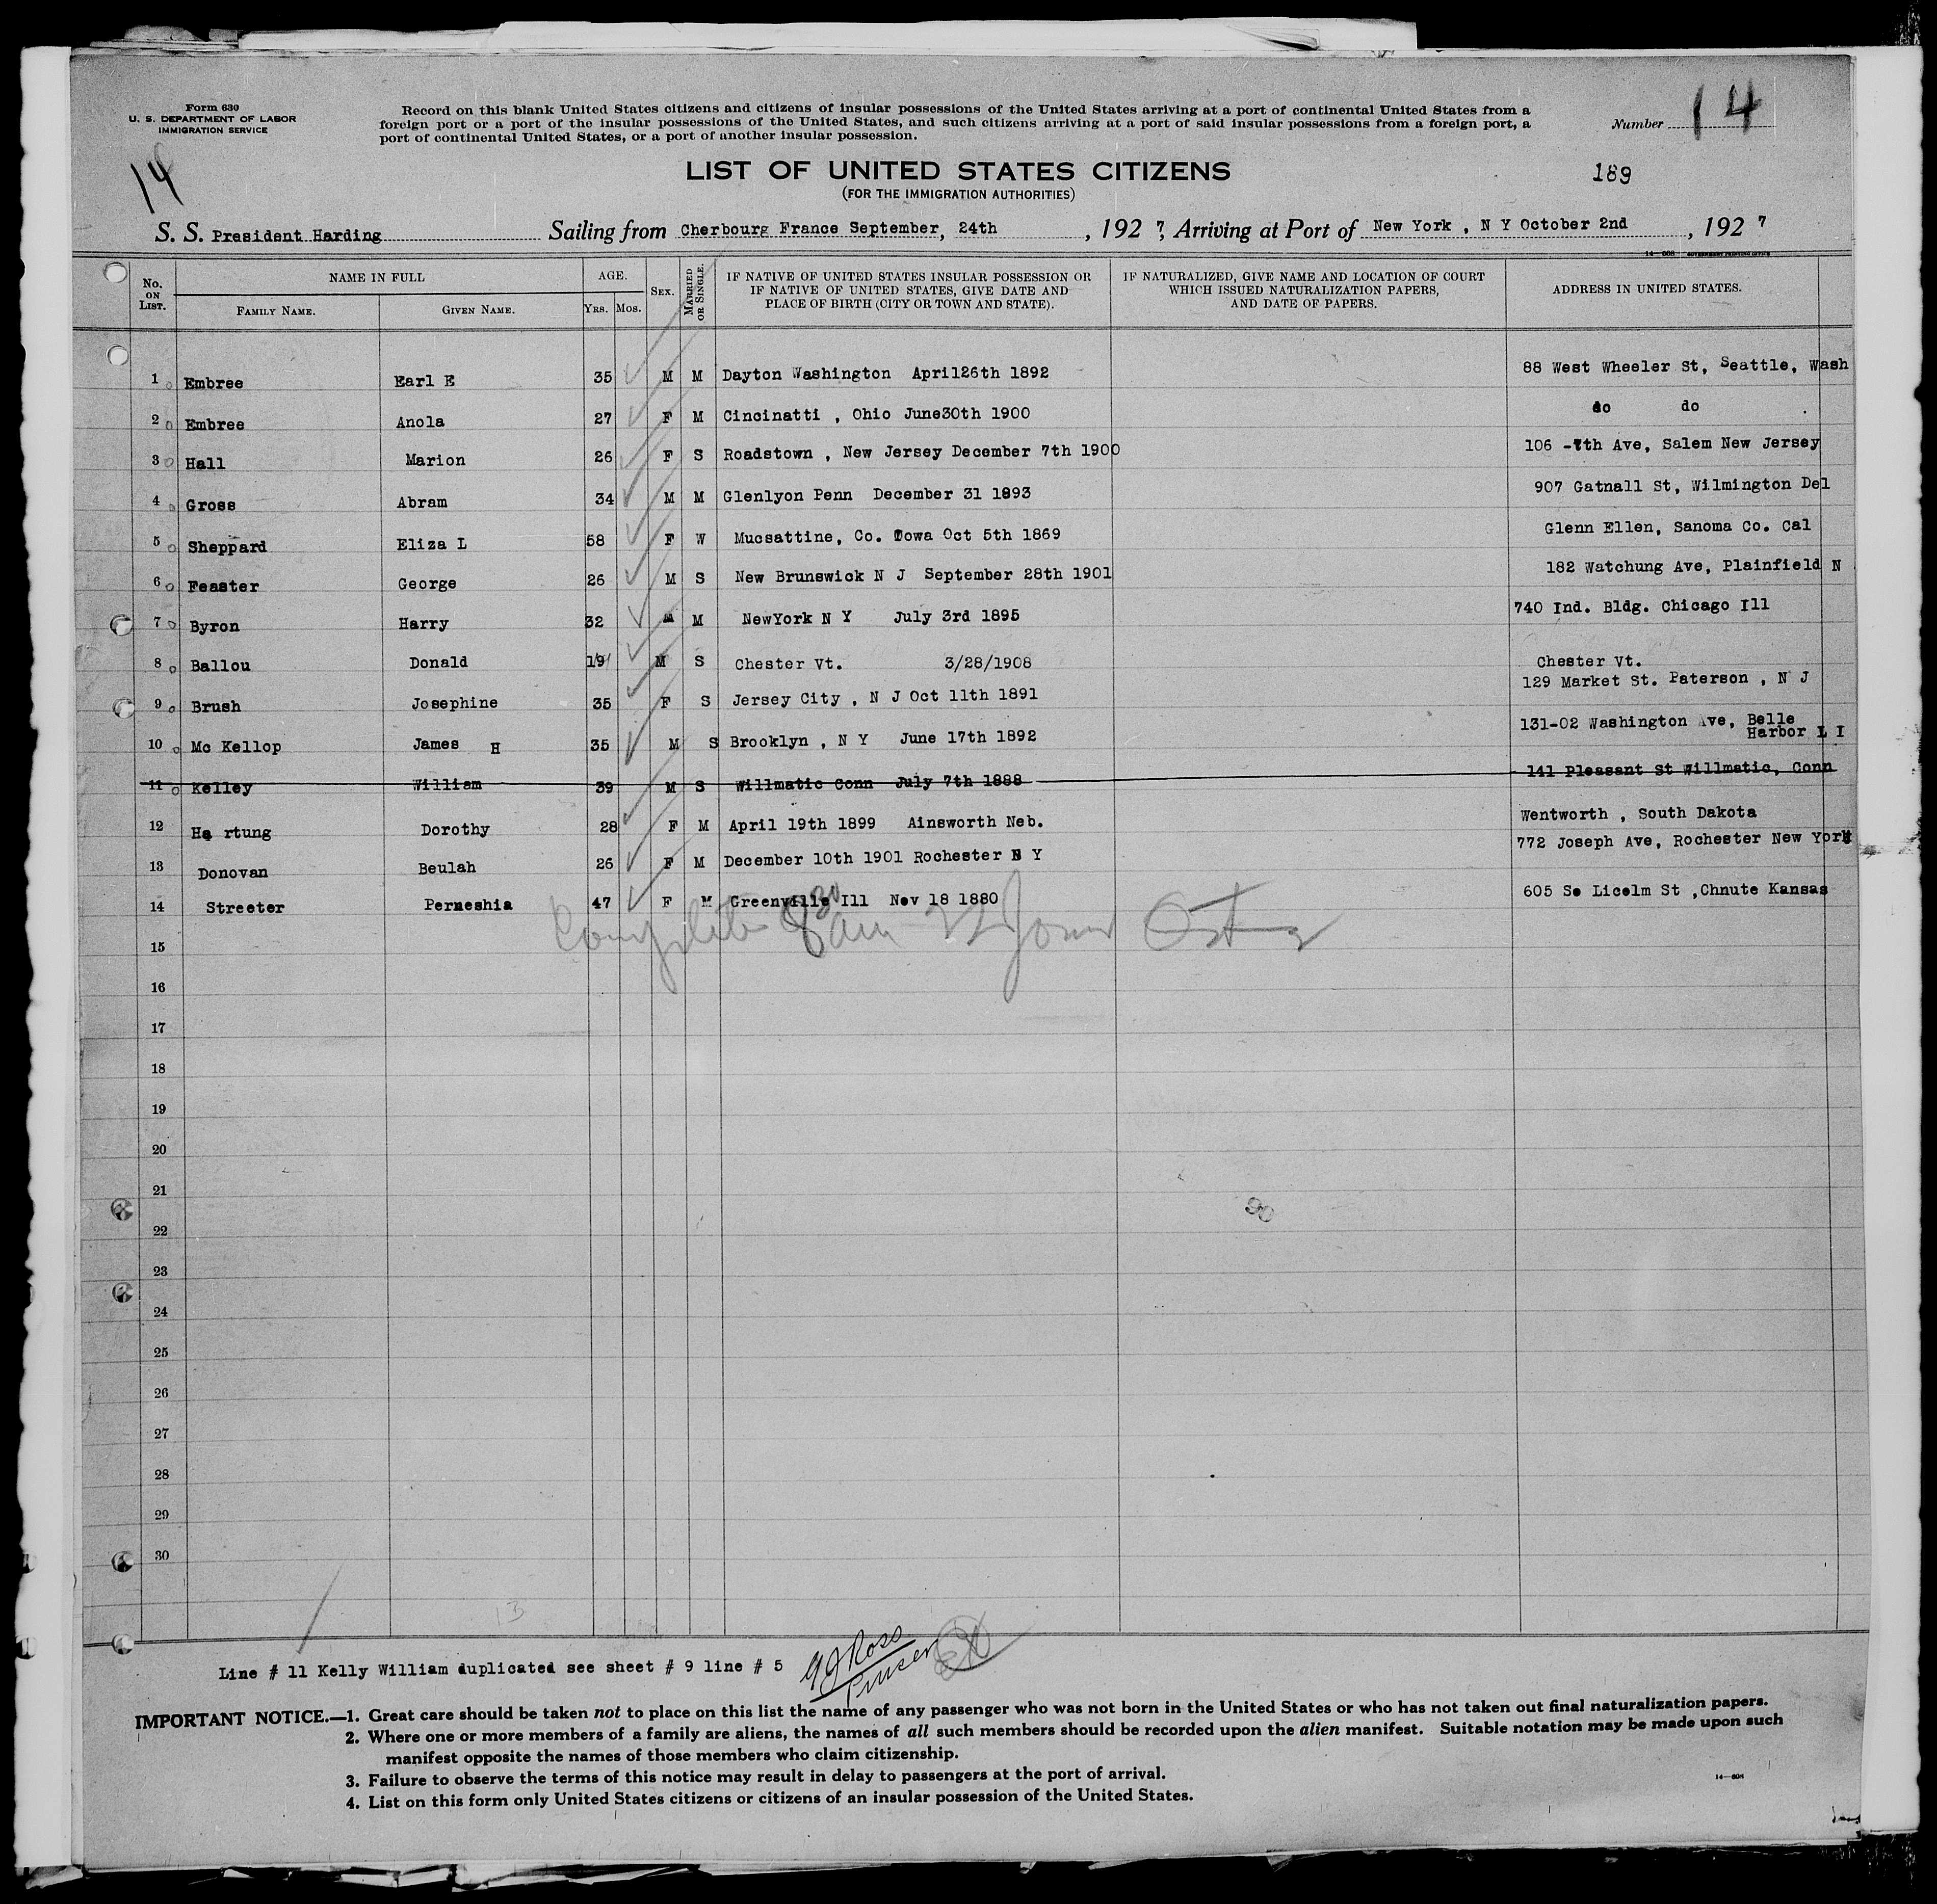 Form 630
U. S. DEPARTMENT OF LABOR
IMMIGRATION SERVICE
Record on this blank United States citizens and citizens of insular possessions of the United States arriving at a port of continental United States from a
foreign port or a port of the insular possessions of the United States, and such citizens arriving at a port of said insular possessions from a foreign port, a
port of continental United States, or a port of another insular possession.
Number 14
14
LIST OF UNITED STATES CITIZENS
(FOR THE IMMIGRATION AUTHORITIES)
189
S. S. President Harding Sailing from Cherbourg France September, 24th , 192 7, Arriving at Port of New York , N Y October 2nd , 192 7
14—608 GOVERNMENT PRINTING OFFICE
No. ON LIST. NAME IN FULL FAMILY NAME. GIVEN NAME. AGE. YRS. MOS. SEX. MARRIED OR SINGLE. IF NATIVE OF UNITED STATES INSULAR POSSESSION OR IF NATIVE OF UNITED STATES, GIVE DATE AND PLACE OF BIRTH (CITY OR TOWN AND STATE). IF NATURALIZED, GIVE NAME AND LOCATION OF COURT WHICH ISSUED NATURALIZATION PAPERS, AND DATE OF PAPERS. ADDRESS IN UNITED STATES.
1 Embree Earl E 35 M M Dayton Washington April26th 1892 88 West Wheeler St, Seattle, Wash
2 Embree Anola 27 F M Cincinatti , Ohio June30th 1900 do do
3 Hall Marion 26 F S Roadstown , New Jersey December 7th 1900 106 -7th Ave, Salem New Jersey
4 Gross Abram 34 M M Glenlyon Penn December 31 1893 907 Gatnall St, Wilmington Del
5 Sheppard Eliza L 58 F W Mucsattine, Co. Iowa Oct 5th 1869 Glenn Ellen, Sanoma Co. Cal
6 Feaster George 26 M S New Brunswick N J September 28th 1901 182 Watchung Ave, Plainfield N
7 Byron Harry 32 M M NewYork N Y July 3rd 1895 740 Ind. Bldg. Chicago Ill
8 Ballou Donald 19 M S Chester Vt. 3/28/1908 Chester Vt.
9 Brush Josephine 35 F S Jersey City , N J Oct 11th 1891 129 Market St. Paterson , N J
10 Mc Kellop James H 35 M S Brooklyn , N Y June 17th 1892 131-02 Washington Ave, Belle Harbor L I
11 Kelley William 39 M S Willmatic Conn July 7th 1888 141 Pleasant St Willmatic, Conn
12 Ha rtung Dorothy 28 F M April 19th 1899 Ainsworth Neb. Wentworth , South Dakota
13 Donovan Beulah 26 F M December 10th 1901 Rochester N Y 772 Joseph Ave, Rochester New York
14 Streeter Perneshia 47 F M Greenville Ill Nov 18 1880 605 So Licolm St ,Chnute Kansas
Complete
15
16
17
18
19
20
21
22
23
24
25
26
27
28
29
30
13
Line # 11 Kelly William duplicated see sheet # 9 line # 5
Ross
Purser
IMPORTANT NOTICE.—1. Great care should be taken not to place on this list the name of any passenger who was not born in the United States or who has not taken out final naturalization papers.
2. Where one or more members of a family are aliens, the names of all such members should be recorded upon the alien manifest. Suitable notation may be made upon such
manifest opposite the names of those members who claim citizenship.
3. Failure to observe the terms of this notice may result in delay to passengers at the port of arrival.
4. List on this form only United States citizens or citizens of an insular possession of the United States.
14—608